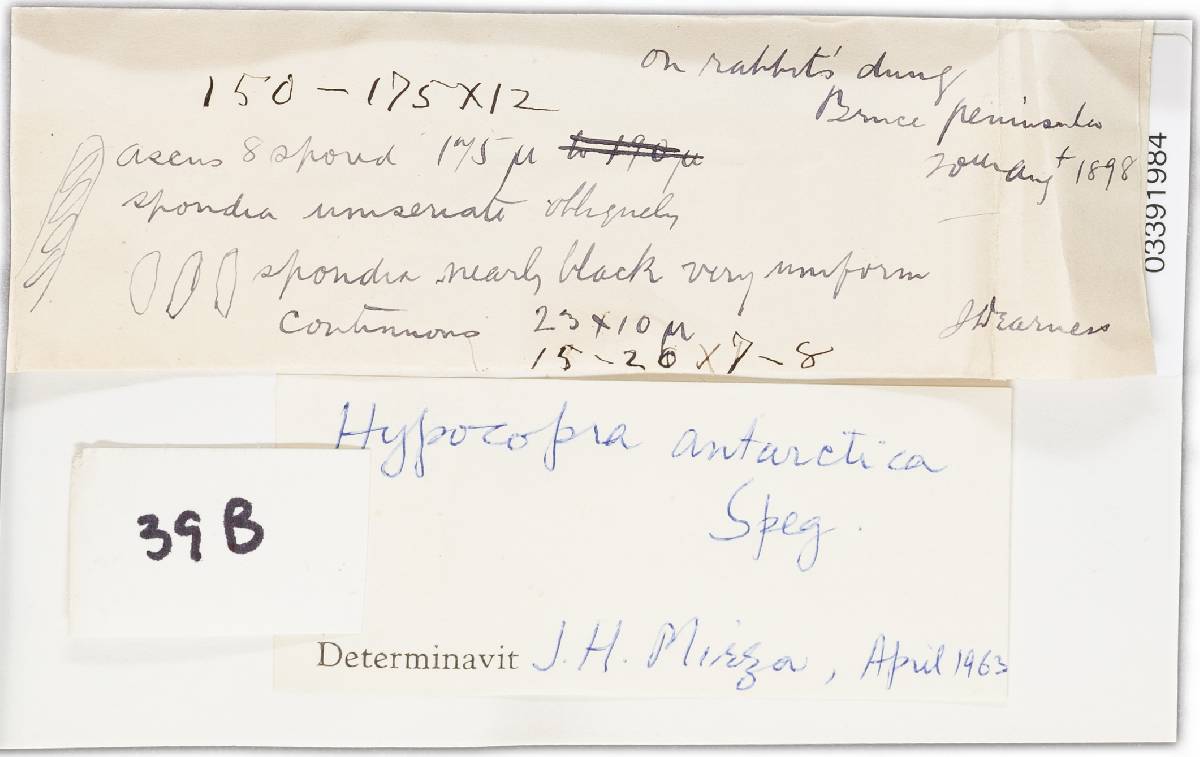 on rabbit's dung
150 – 175 X 12
Bruce peninsula
ascus 8 spored 175 µ to 190 µ
20th Augt 1898
sporidia uniseriate obliquely
sporidia nearly black very uniform
continuous 23 x 10 µ
J Dearness
15 - 20 X 7 - 8
03391984
Hypocopra antarctica
Speg.
39 B
Determinavit J. H. Mirza, April 1963